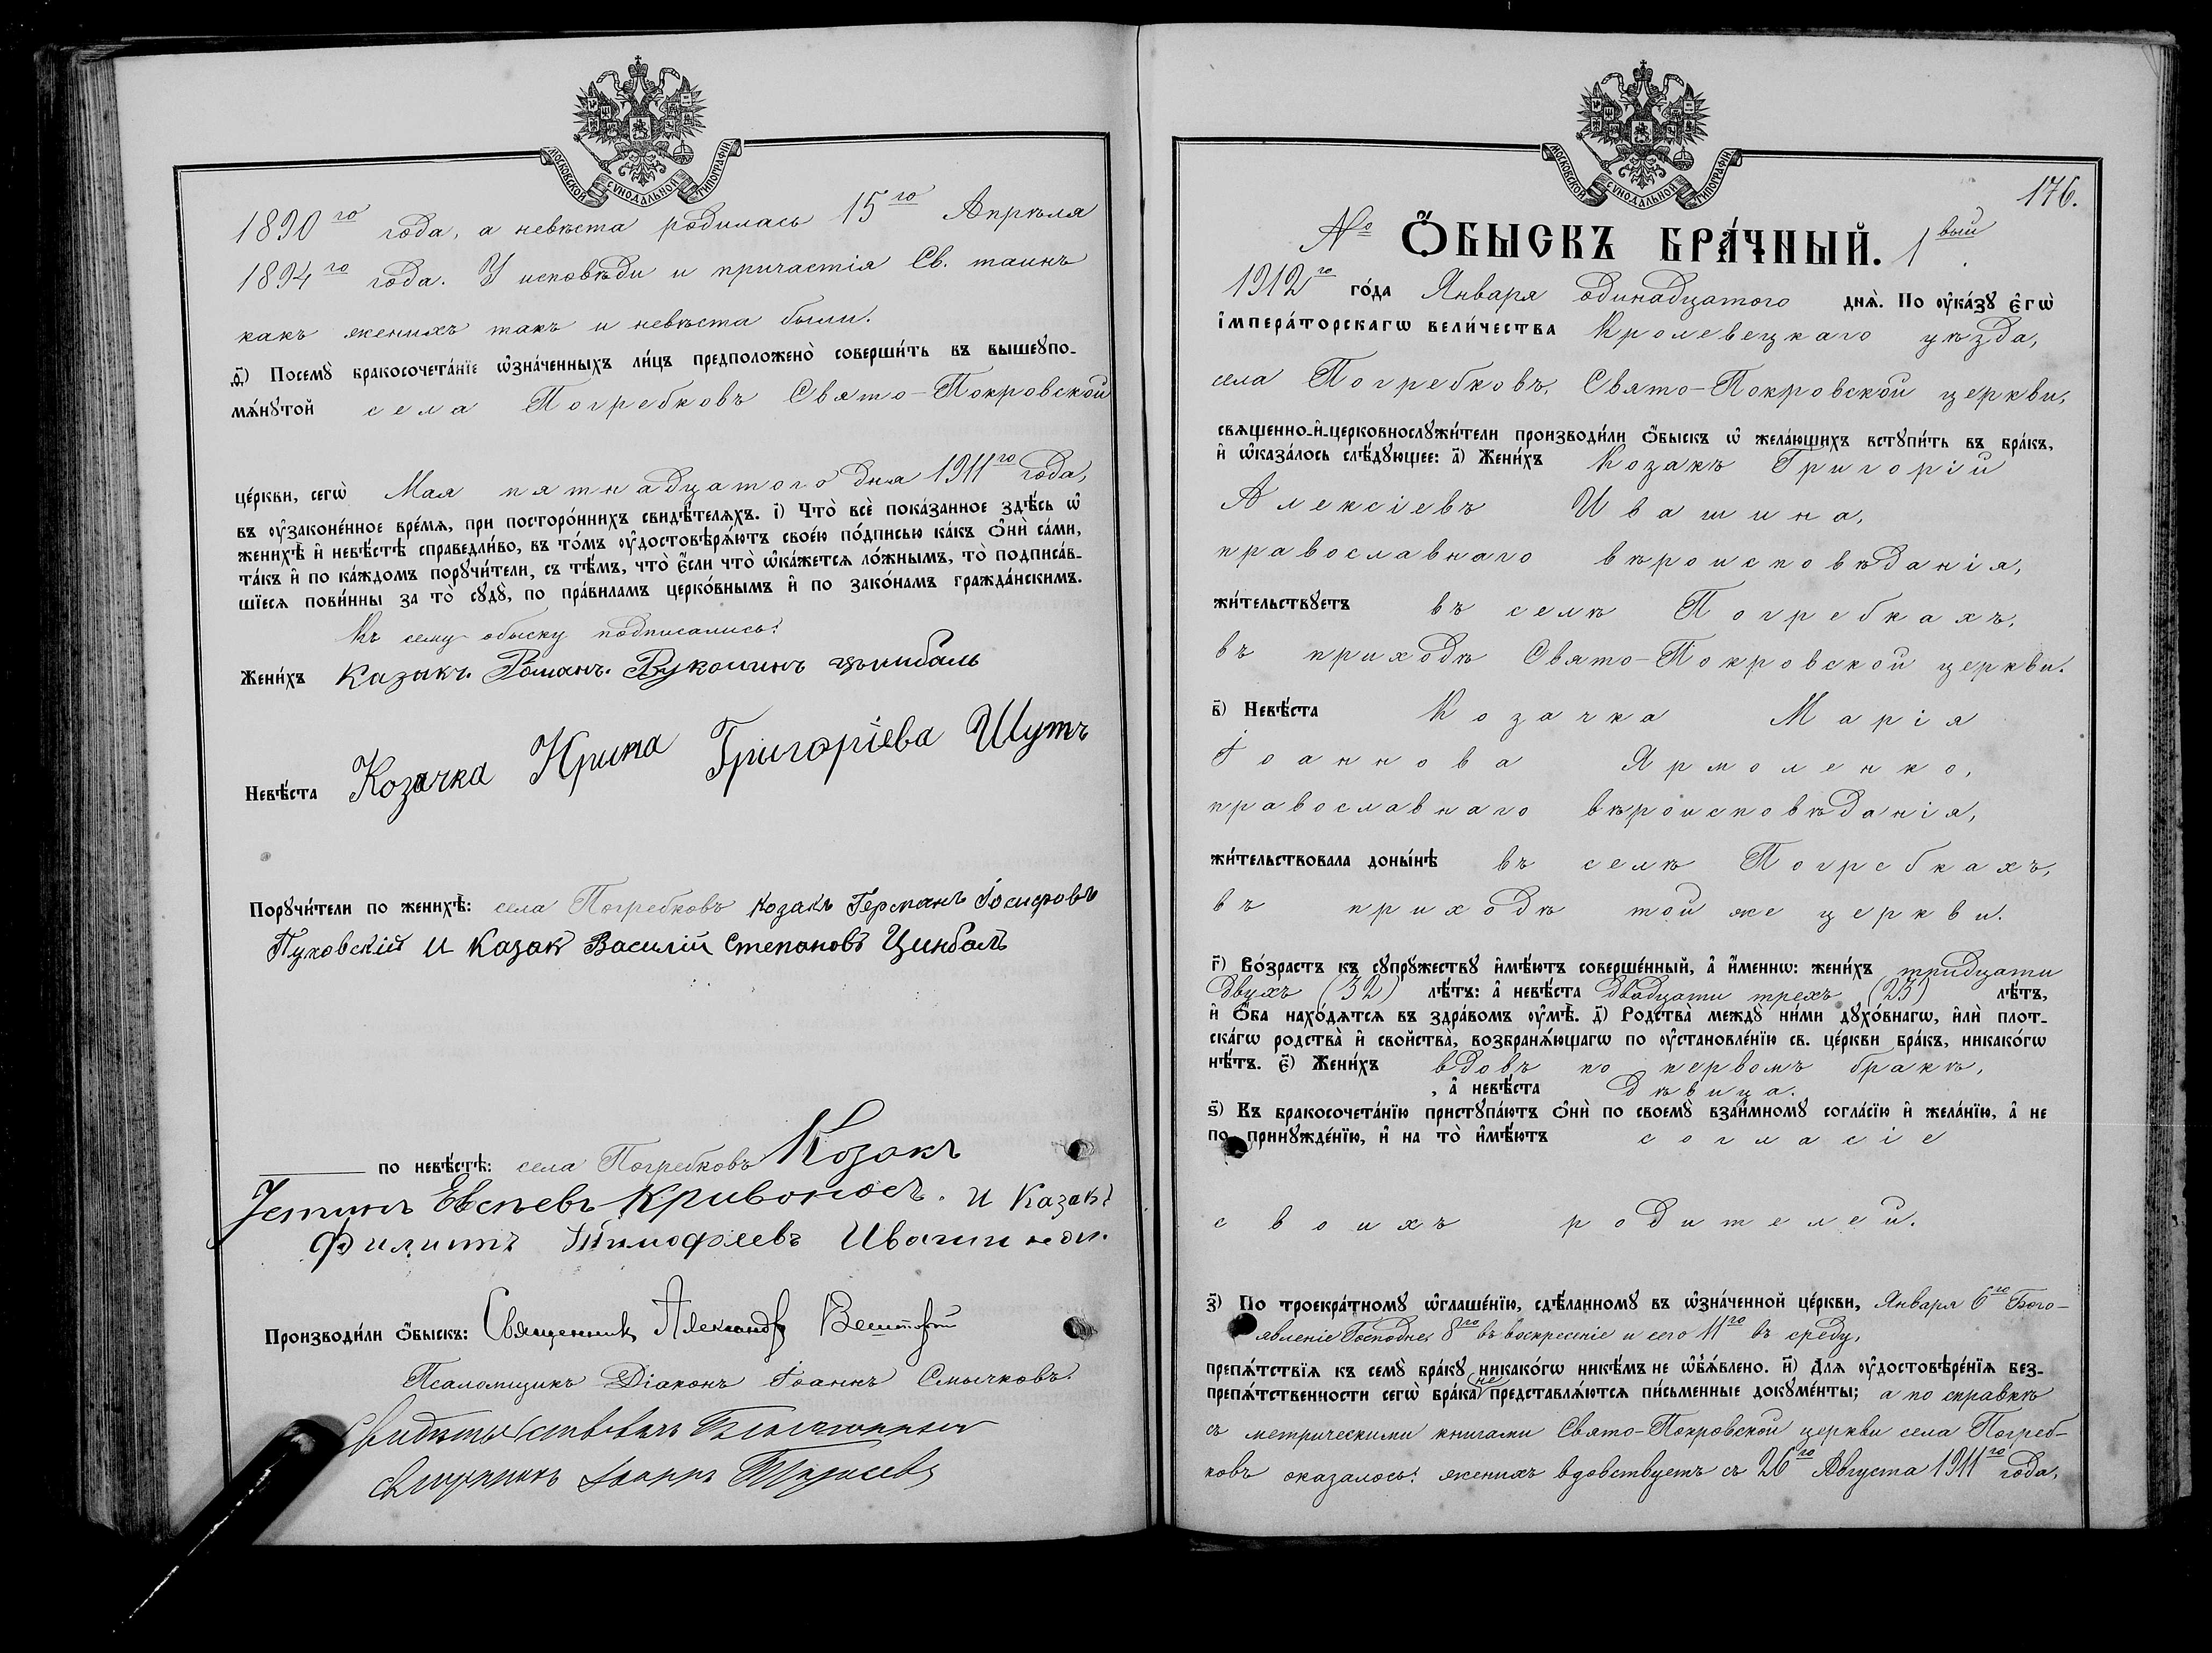 МОСКОВСКОЙ СУНОДАЛЬНОЙ ТИПОГРАФІИ
1890го года, а невѣста родилась 15го Апрѣля
1894го года. У исповѣди и причастія Св. таинъ
какъ женихъ такъ и невѣста были.
д҃) Посемꙋ̀ бракосочета́нїе ѡ҆зна́ченныхъ ли́цъ предположено̀ соверши́ть въ вышеꙋпо-
мѧ́нꙋтой села Погребковъ Свято-Покровской
це́ркви, сегѡ̀ Мая пятнадцатого дня 1911го года,
въ ᲂу҆законе́нное вре́мѧ, при посторо́ннихъ свидѣ́телѧхъ. і҃) Что̀ всѐ пока́занное здѣ́сь ѡ҆
женихѣ̀ и҆ невѣ́стѣ справедли́во, въ то́мъ ᲂу҆достовѣрѧ́ютъ свое́ю по́дписью ка́къ ѻ҆нѝ са́ми,
та́къ и҆ по ка́ждомъ порꙋчи́тели, съ тѣ́мъ, что̀ є҆́сли что̀ ѡ҆ка́жется ло́жнымъ, то̀ подписа́в-
шїесѧ пови́нны за то̀ сꙋдꙋ̀, по пра́виламъ церко́внымъ и҆ по зако́намъ гражда́нскимъ.
Къ сему обыску подписались:
Жени́хъ Казакъ. Романъ. Вуколинъ цымбаль
Невѣ́ста Козачка Ирина Григоріева Шутъ
Порꙋчи́тели по женихѣ̀: села Погребковъ Козакъ Германъ Іосифовъ
Пуховскій и Казак Василій Степановъ Цинбалъ
по невѣ́стѣ: села Погребковъ Козакъ
Устинъ Евсѣевъ Кривоносъ. и Казакъ
Филипъ Тимофѣевъ Ивашина.
Производи́ли ѻ҆́быскъ: Священникъ Александръ
Псаломщикъ Діаконъ Іоаннъ Смычковъ.
Свидѣтельствовалъ Благочинный
священникъ Іоаннъ
МОСКОВСКОЙ СУНОДАЛЬНОЙ ТИПОГРАФІИ
176.
№ Ѻ҆́БЫСКЪ БРА́ЧНЫЙ. 1вый
1912го го́да Января одинадцатого днѧ̀. По ᲂу҆ка́зꙋ є҆гѡ̀
і҆мпера́торскагѡ вели́чества Кролевецкаго уѣзда,
села Погребковъ, Свято-Покровской церкви,
свѧщенно-и҆-церковнослꙋжи́тели производи́ли ѻ҆́быскъ ѡ҆ жела́ющихъ встꙋпи́ть въ бра́къ,
и҆ ѡ҆каза́лось слѣ́дꙋющее: а҃) Жени́хъ Козакъ Григорій
Алексіевъ Ивашина,
православнаго вѣроисповѣданія,
жи́тельствꙋетъ въ селѣ Погребкахъ,
въ приходѣ Свято-Покровской церкви.
в҃) Невѣ́ста Козачка Марія
Іоаннова Ярмоленко,
православнаго вѣроисповѣданія,
жи́тельствовала доны́нѣ въ селѣ Погребкахъ,
въ приходѣ той же церкви.
г҃) Во́зрастъ къ сꙋпрꙋ́жествꙋ и҆мѣ́ютъ соверше́нный, а҆ и҆́меннѡ: жени́хъ тридцати
двухъ (32) лѣ́тъ: а҆ невѣ́ста двадцати трехъ (23) лѣ́тъ,
и҆ ѻ҆́ба нахо́дѧтсѧ въ здра́вомъ ᲂу҆мѣ̀. д҃) Родства̀ междꙋ̀ ни́ми дꙋхо́внагѡ, и҆лѝ плот-
ска́гѡ родства̀ и҆ свойства̀, возбранѧ́ющагѡ по ᲂу҆становле́нїю св. це́ркви бра́къ, никако́гѡ
нѣ́тъ. є҃) Жени́хъ вдовъ по первомъ бракѣ,
, а҆ невѣ́ста дѣвица.
ѕ҃) Къ бракосочета́нїю пристꙋпа́ютъ ѻ҆нѝ по своемꙋ̀ взаи́мномꙋ согла́сїю и҆ жела́нїю, а҆ не
по принꙋжде́нїю, и҆ на то̀ и҆мѣ́ютъ согласіе
своихъ родителей.
з҃) По троекра́тномꙋ ѡ҆глаше́нїю, сдѣ́ланномꙋ въ ѡ҆зна́ченной це́ркви, Января 6го Бого-
явленіе Господне, 8го въ воскресеніе и сего 11го въ среду,
препѧ́тствїѧ къ семꙋ̀ бра́кꙋ никако́гѡ никѣ́мъ не ѡ҆б̾ѧ́влено. и҃) Для ᲂу҆достовѣре́нїѧ без-
препѧ́тственности сегѡ̀ бра́ка не представлѧ́ютсѧ пи́сьменные докꙋме́нты; а по справкѣ
съ метрическими книгами Свято-Покровской церкви села Погреб-
ковъ оказалось: женихъ вдовствуетъ съ 26го Августа 1911го года,